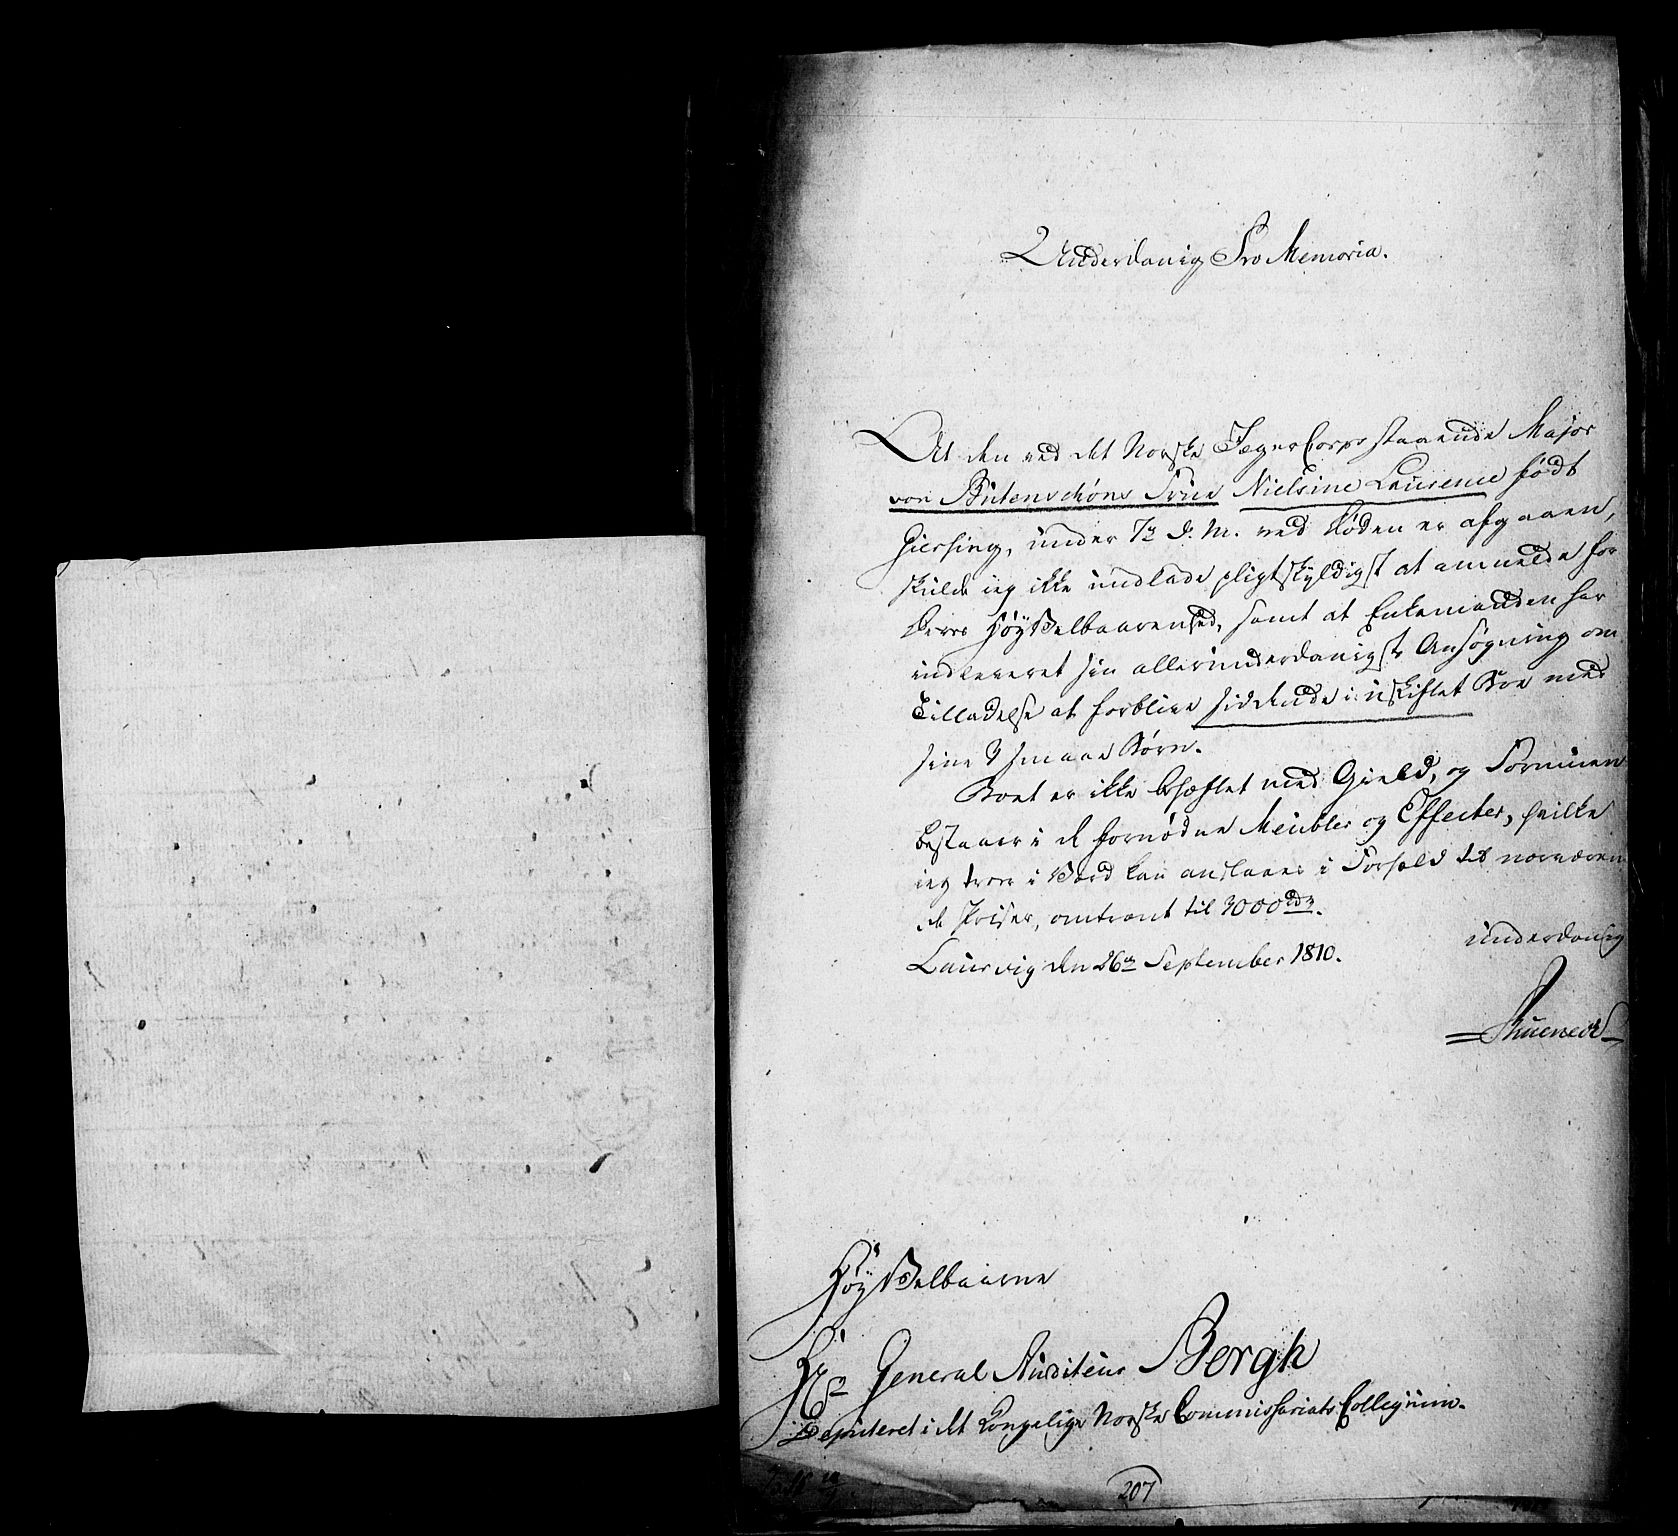 Underdanig Pro Memoria.
At den ved det Norske JægerCorps staaende Major
von Bütenschøns Frue Nielsine Laurence født
Giersing, under 7de d. M. ved Døden er afgaaen,
skulde ieg ikke undlade pligtskyldigst at anmelde for
Deres HøyVelbaarenhed, samt at Enkemanden har
indleveret sin allerunderdanigste Ansøgning om
Tilladelse at forblive siddende i uskiftet Boe med
sine 3 smaae Børn.
Boet er ikke behæftet med Gield, og Formuen
bestaaer i de fornødne Meubler og Effecter, hvilke
ieg troer i Værd kan anslaaes i Forhold til nærværen
de Priser, omtrent til 3000 rdr.
Laurvig den 26de September 1810.
underdanig
HøyVelbaarne
Hr General Auditeur Bergh
Deputeret i det Kongelige Norske Commissariats Collegium.
207